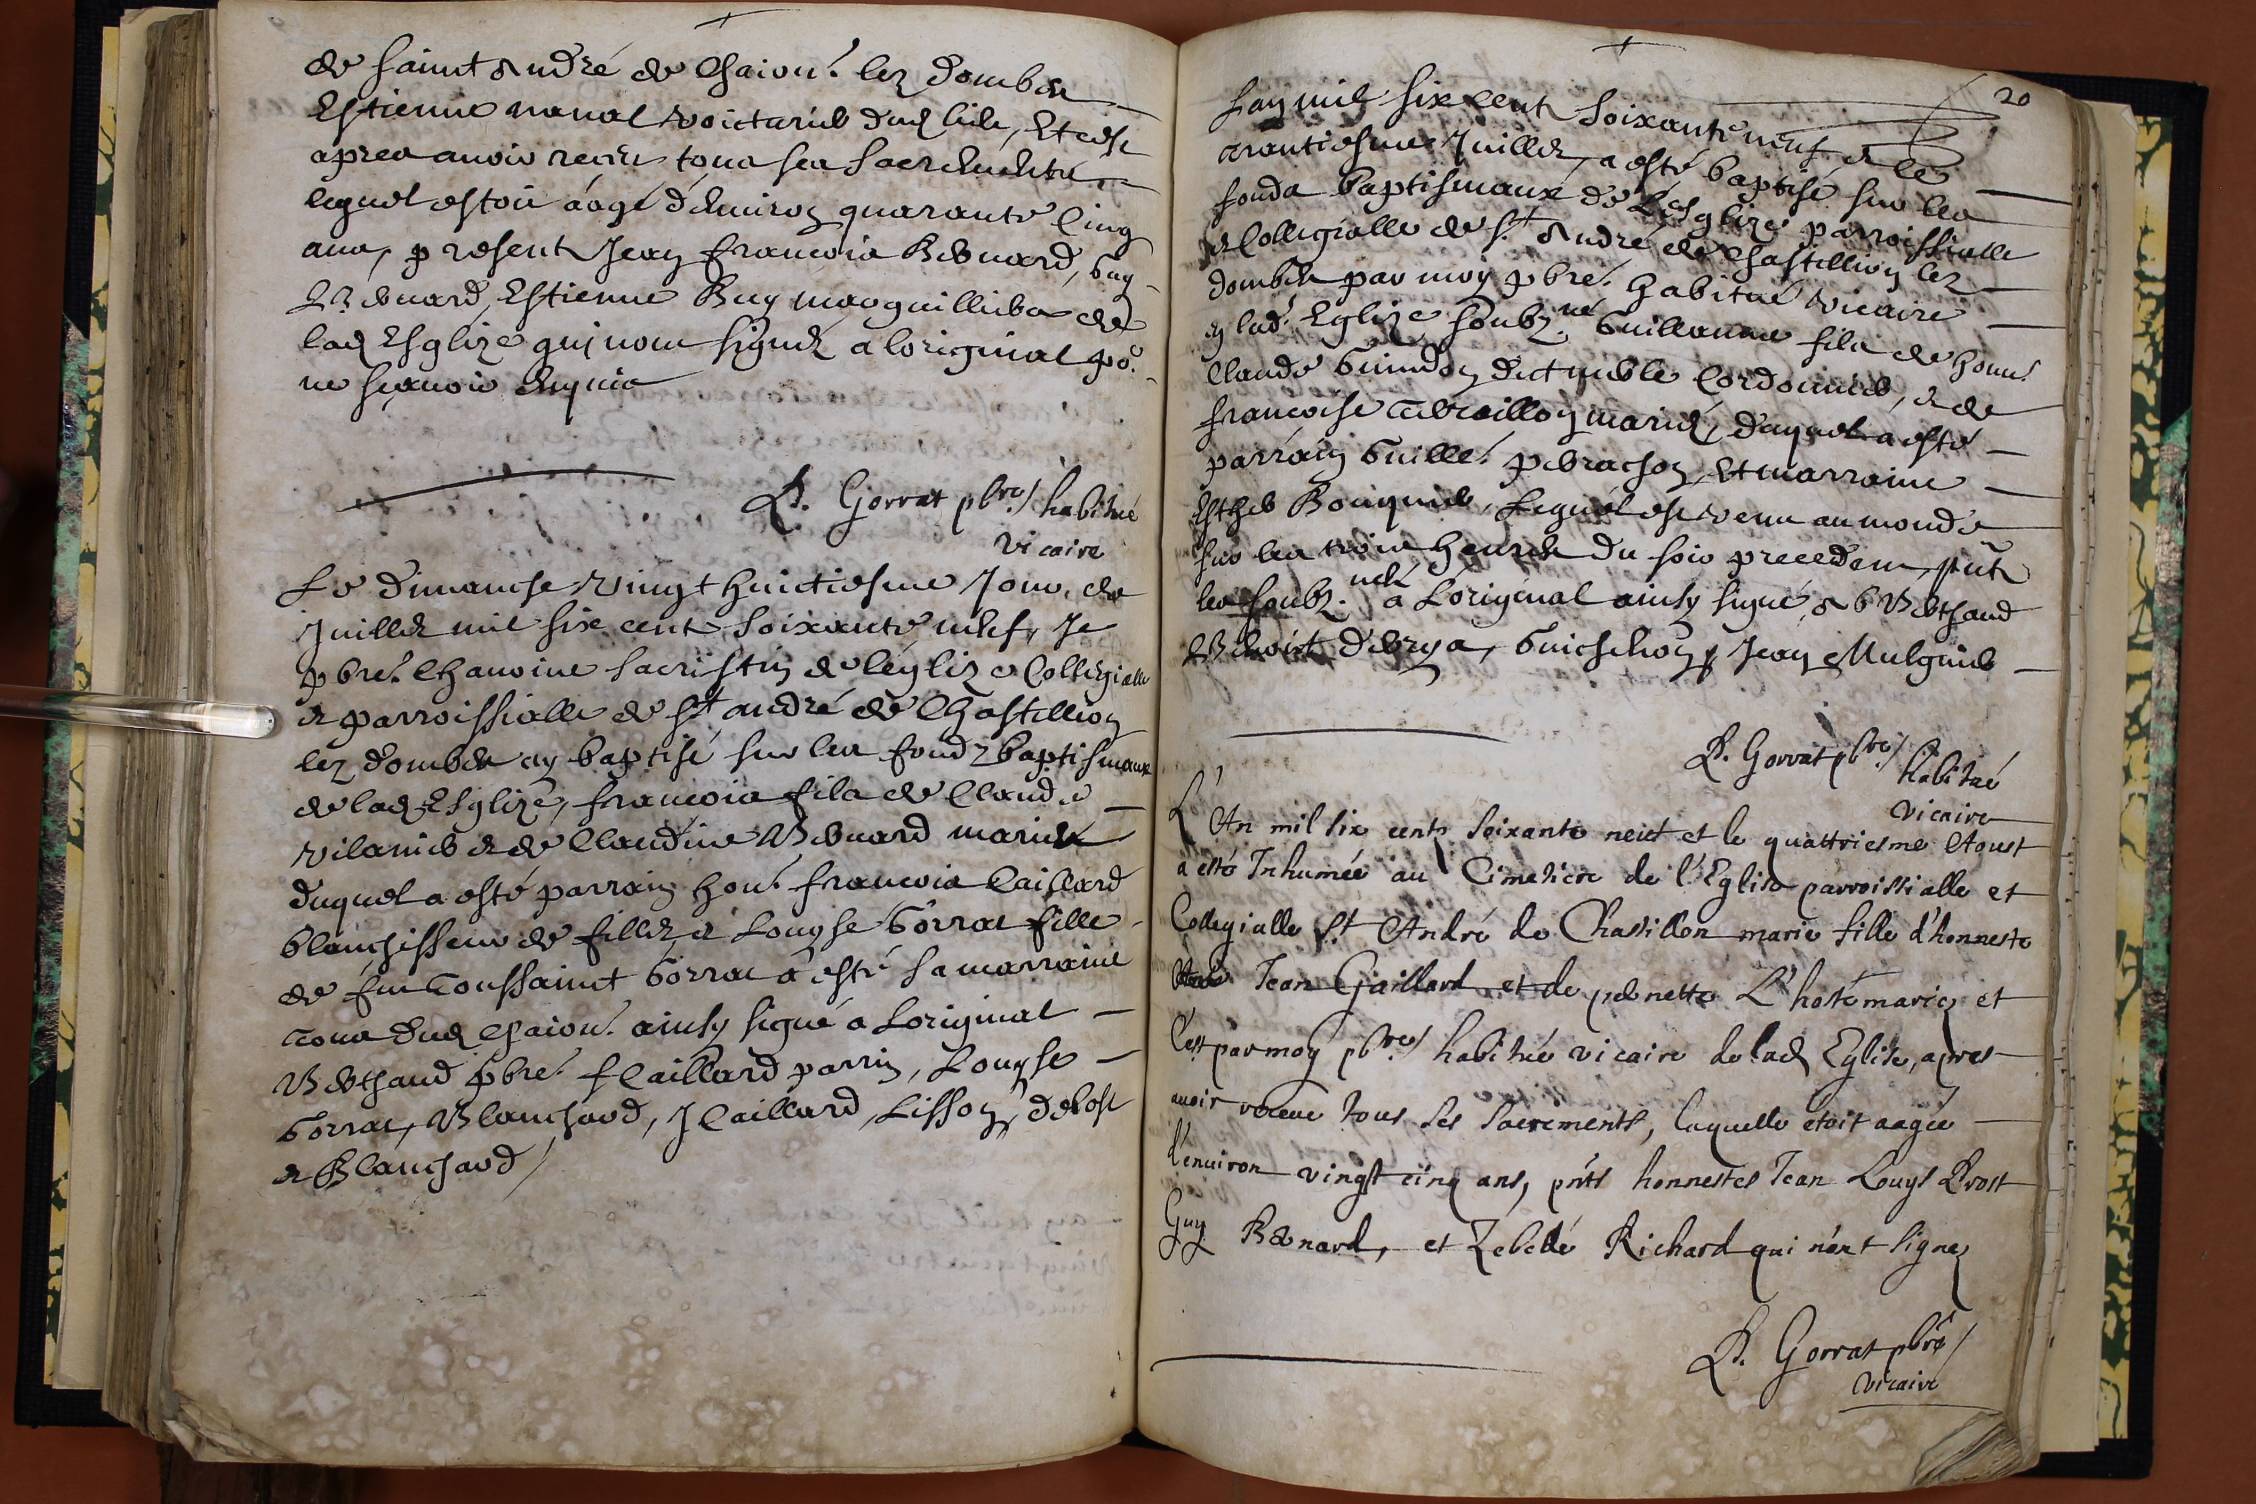 de saint André de Chaion. lez Dombes
Estienne naval voicturier dud lieu, Et ce
apres avoir receu tous ses sacrements
lequel estoit aagé d'environ quarante Cinq
ans, present Jean francois Bernard, Guy
Bernard, Estienne Buy marguilliers de
lad Esglize qui nont signez a loriginal po.
ne scavoir enquis
P. Gorrat pbre/ habitué
vicaire
Le dimanche vingt huictiesme Jour de
Juillet mil six cent soixante neuf, Je
pbre. Chanoine sacristin de l'eglize Collegialle
et parroissialle de St andré de Chastillion
lez dombes ay baptisé sur les fondz baptismaux
de lad Esglize, francois fils de Claude
vilanier et de Claudine Bernard mariez
duquel a esté parrain hon. francois Caillard
blanchisseur de fillez et Louyse Gorrat fille
de feu Toussainct Gorrat a esté sa marraine
tous dud Chaion. ainsy signé a Loriginal
Berthaud pbre. f Caillard parrin, Louyse
Gorrat, Blanchard, J Caillard, Lisson, debost
et Blanchard /
20
Lan mil six cent soixante neuf et le
trantiesme Juillet, a esté baptisé sur les
fonds baptismaux de L'Esglize parroissialle
et Collegialle de St André de Chastillion lez
dombes par moy pbre. habitué vicaire
en lad. Eglize soubz.né Guillaume fils de honn.
Claude Guindon dict noble Cordonnier, et de
francoise mariez, duquel a esté
parrain Guille. pebrachon, Et marraine
Esther Bouquier, Lequel est venu au monde
sur les trois heures du soir precedent, pnts
les soubz.nez a L'original ainsy signé, A G Berthaud
Benoist Guichenon, Jean Mulquier
P. Gorrat pbre/
habitué
vicaire
L'An mil six cents soixante neuf et le quattriesme Aoust
a esté Inhumée au Cimetiere de l'Eglise parroissialle et
Collegialle St André de Chatillon marie fille d'honneste
Jean Gaillard et de pernette L'hoste mariez et
C'est par moy pbre/ habitué vicaire de lad Eglise, apres
avoir receue tous ses sacrements, laquelle etoit aagée
d'environ vingt cinq ans, pnts honnestes Jean Louys Prost
Guy Bernard, et Zebedé Richard qui n'ont signez
P. Gorrat pbre/
vicaire